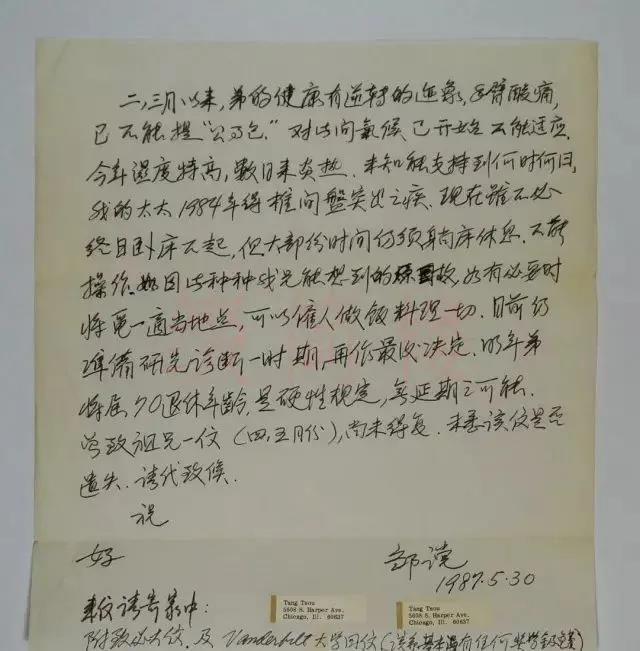 二,三月以来,弟的健康有逆转的迹象,手臂酸痛,
已不能提“公事包.”对此间气候已开始不能适应.
今年湿度特高,数日来炎热.未知能支持到何时何日,
我的太太1984年得椎间盤突出之疾.现在雖不必
终日卧床不起,但大部份时间仍须卧床休息.不能
操作.因此种种我只能想到的原故,如有必要时
将覓一適当地点,可以僱人做饭料理一切.目前仍
準備研究诊断一时期,再作最後决定.明年弟
将届70退休年龄,是硬性规定,無延期之可能.
曾致祖兄一信(四,五月份),尚未得复.未悉该信是否
遗失.请代致候.
祝
好
邹谠
1987.5.30
来信请寄家中:
Tang Tsou
5608 S. Harper Ave.
Chicago, Ill. 60637
Tang Tsou
5608 S. Harper Ave.
Chicago, Ill. 60637
附致 大信.及 Vanderbilt大学回信(该系基本没有任何奖学金